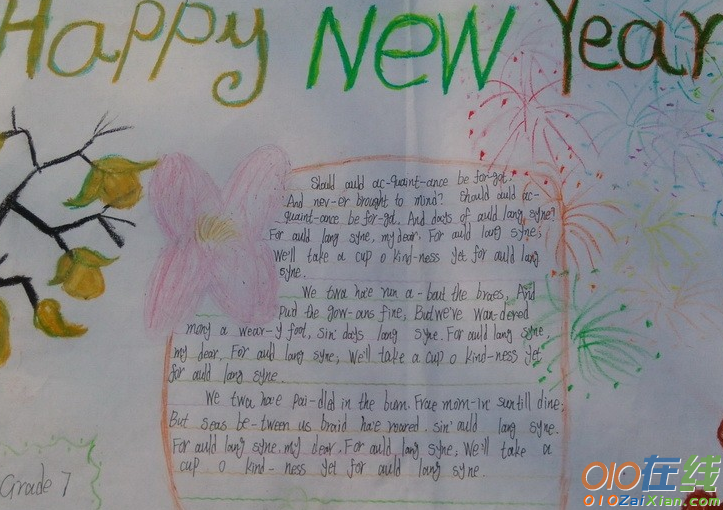 Happy New Year
Should auld ac-quaint-ance be for-got,
And nev-er brought to mind? Should auld ac-
quaint-ance be for-got, And days of auld lang syne?
For auld lang syne, my dear, For auld lang syne;
We'll take a cup o kind-ness yet for auld lang
syne.
We twa hae run a-bout the braes, And
pu'd the gow-ans fine; But we've wan-dered
mony a wear-y foot, sin' days lang syne. For auld lang syne,
my dear, For auld lang syne; We'll take a cup o kind-ness yet
for auld lang syne.
We twa hae pai-dled in the burn. Frae morn-in' sun till dine;
But seas be-tween us braid hae roared, sin' auld lang syne.
For auld lang syne, my dear, For auld lang syne; We'll take a
cup o kind-ness yet for auld lang syne.
Grade 7
010在线
010ZaiXian.com